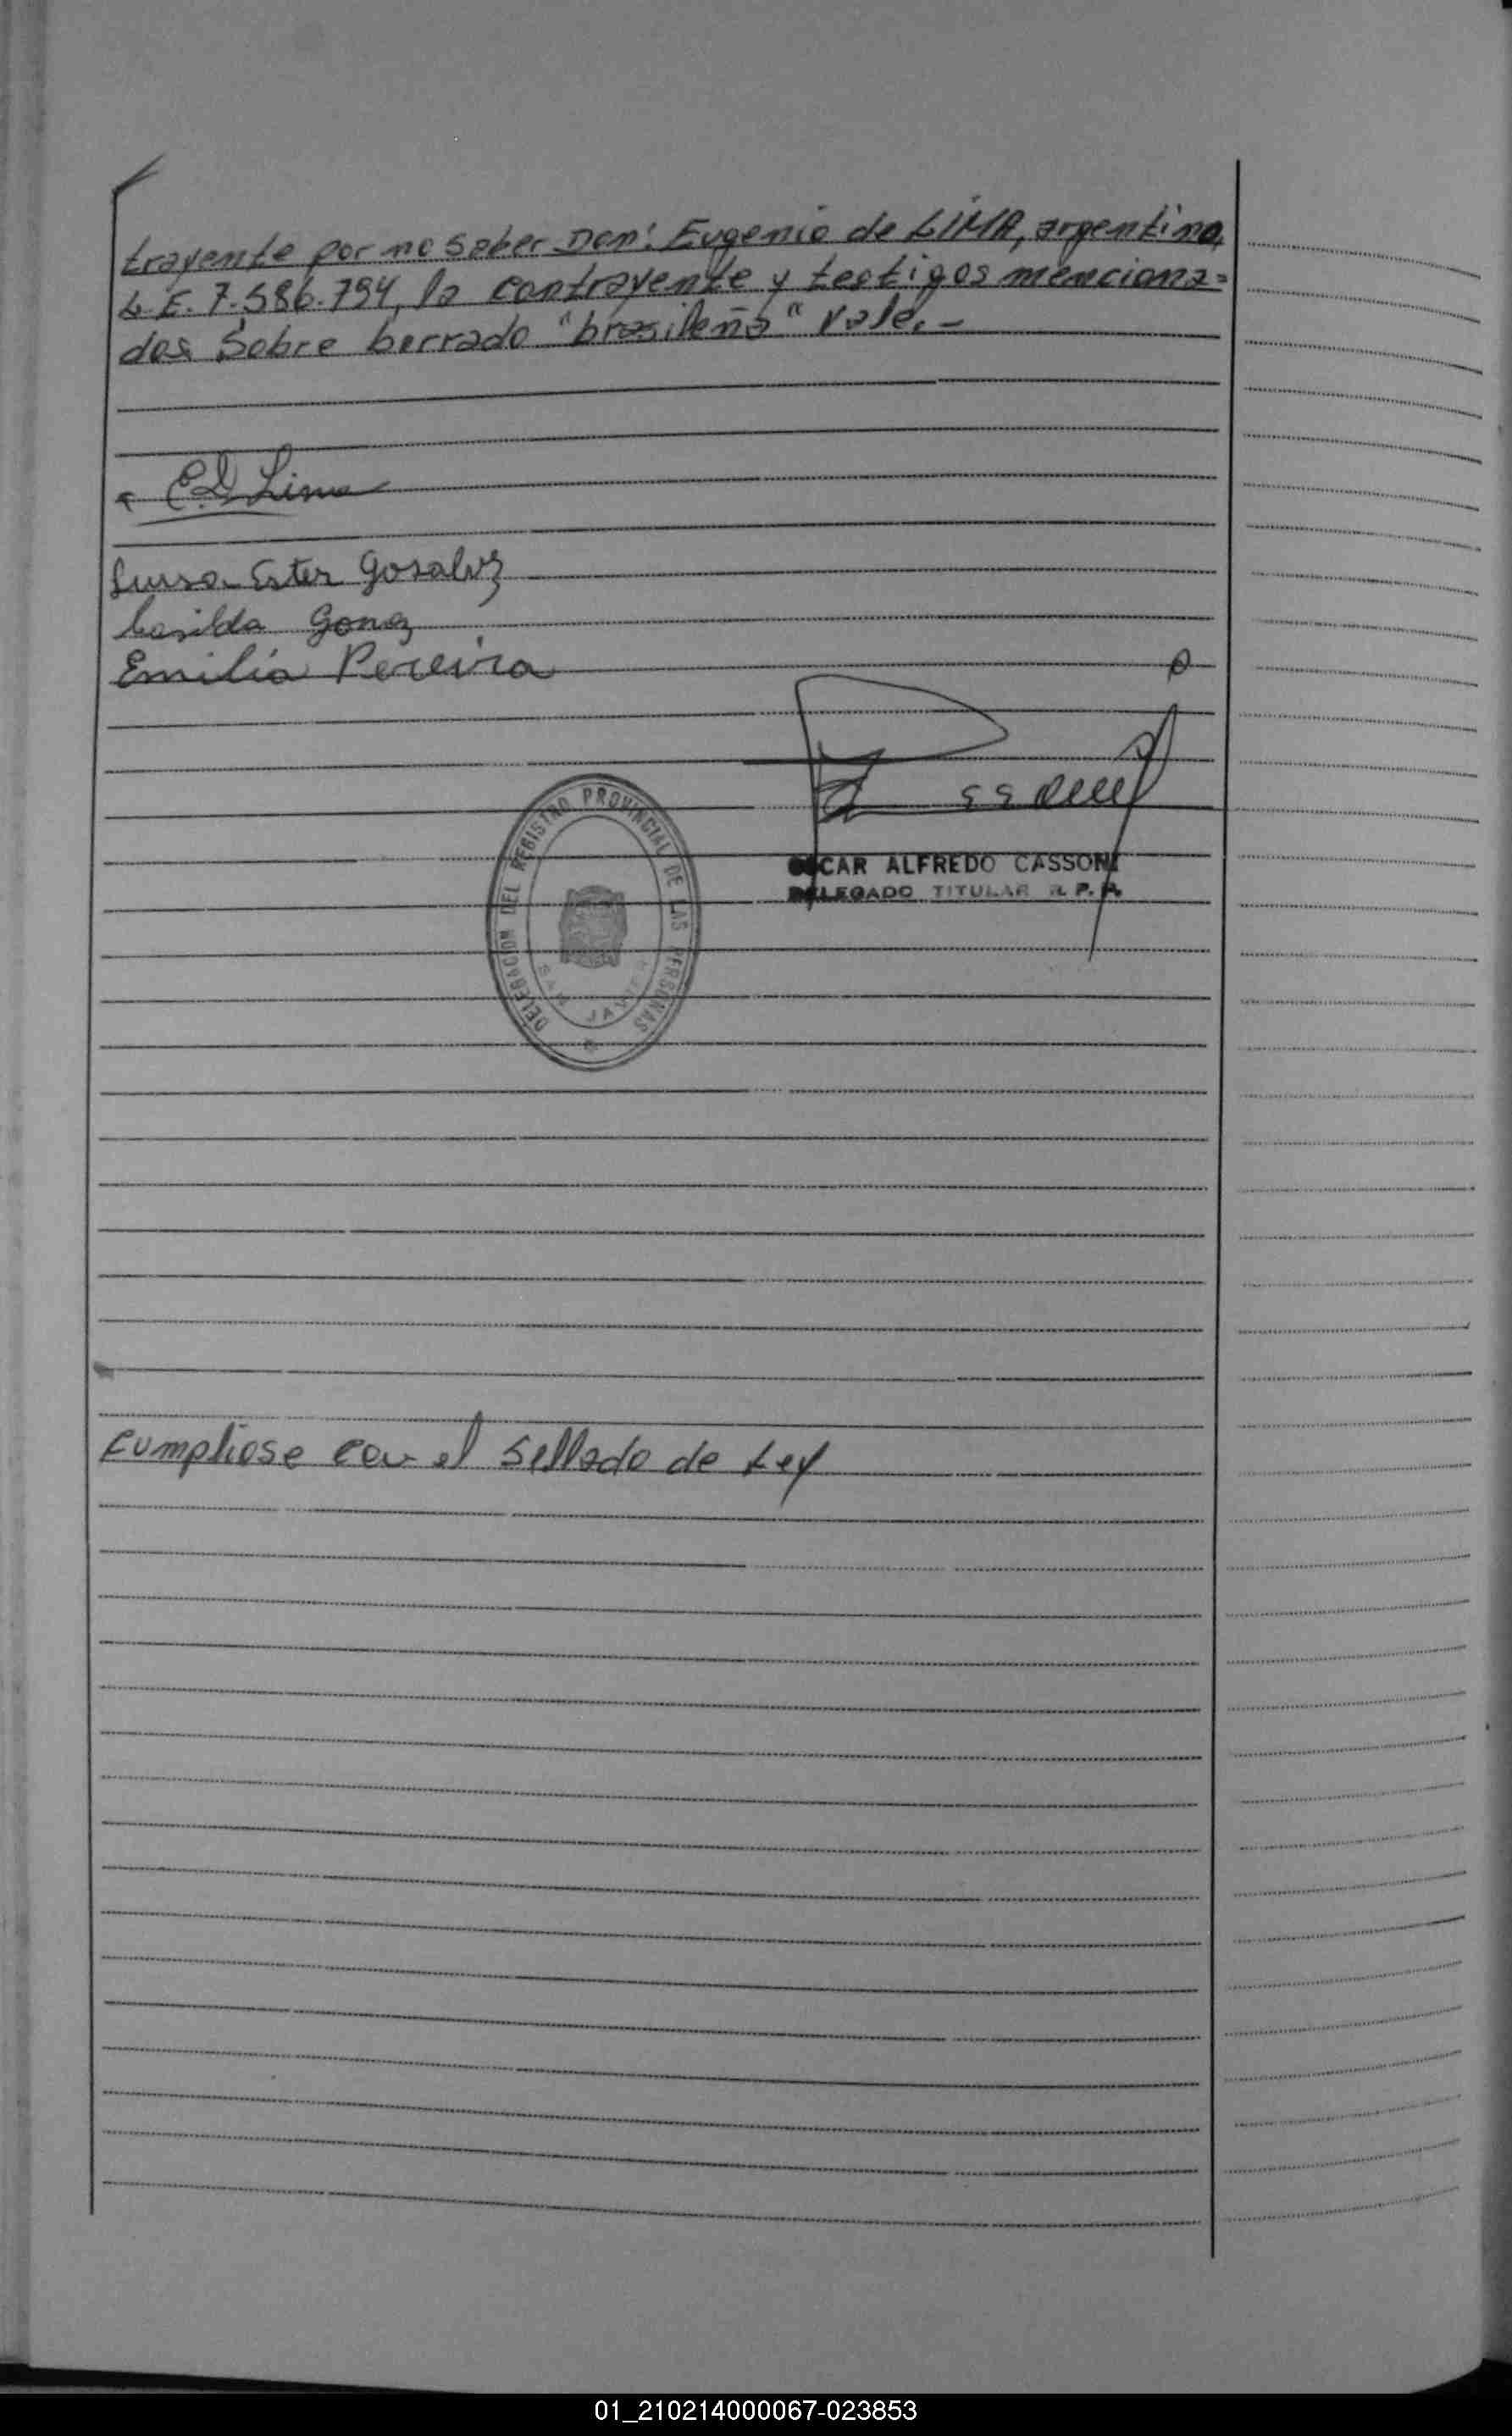 trayente por no saber Don: Eugenio de LIMA, argentino,
L.E. 7.586.794, la contrayente y testigos menciona=
dos. Sobre borrado "brasileña" Vale.-
E.D Lima
Luisa Ester Gosalvz
Casilda Gomz
Emilia Pereira
OSCAR ALFREDO CASSONI
DELEGADO TITULAR R. P. P.
DELEGACION DEL REGISTRO PROVINCIAL DE LAS PERSONAS
SAN JAVIER
Cumpliose con el Sellado de Ley
01_210214000067-023853